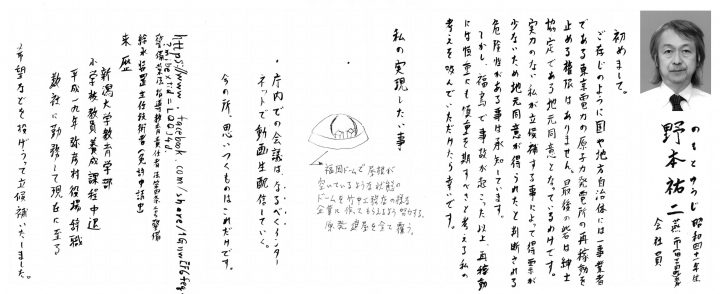 のもとゆうじ
野本祐二
昭和四十一年生
燕市吉田
会社員
初めまして。
ご存じのように国や地方自治体には一事業者
である東京電力の原子力発電所の再稼動を
止める権限はありません。最後の砦は紳士
協定である地元同意となっているわけです。
実力のない私が立候補する事によって得票が
少ないため地元同意が得られたと判断される
危険性がある事は承知しています。
しかし、福島で事故が起こった以上、再稼動
には慎重にも慎重を期すべきと考える私の
考えを汲んでいただけたら幸いです。
私の実現したい事
福岡ドームで屋根が
空いているような状態の
ドームを竹中工務店の様な
企業に作ってもらえるよう努力する。
原発建屋を全て覆う。
・庁内での会議は、なるべくインター
ネットで動画生配信していく。
今の所、思いつくものはこれだけです。
https://www.facebook.com/share/
警備業法 指導教育責任者
給水装置主任技術者(免許申請中)
来歴
新潟大学教育学部
小学校教員養成課程中退
平成一九年弥彦村役場辞職
数社に勤務して現在に至る
希望などを投げうって立候補いたしました。